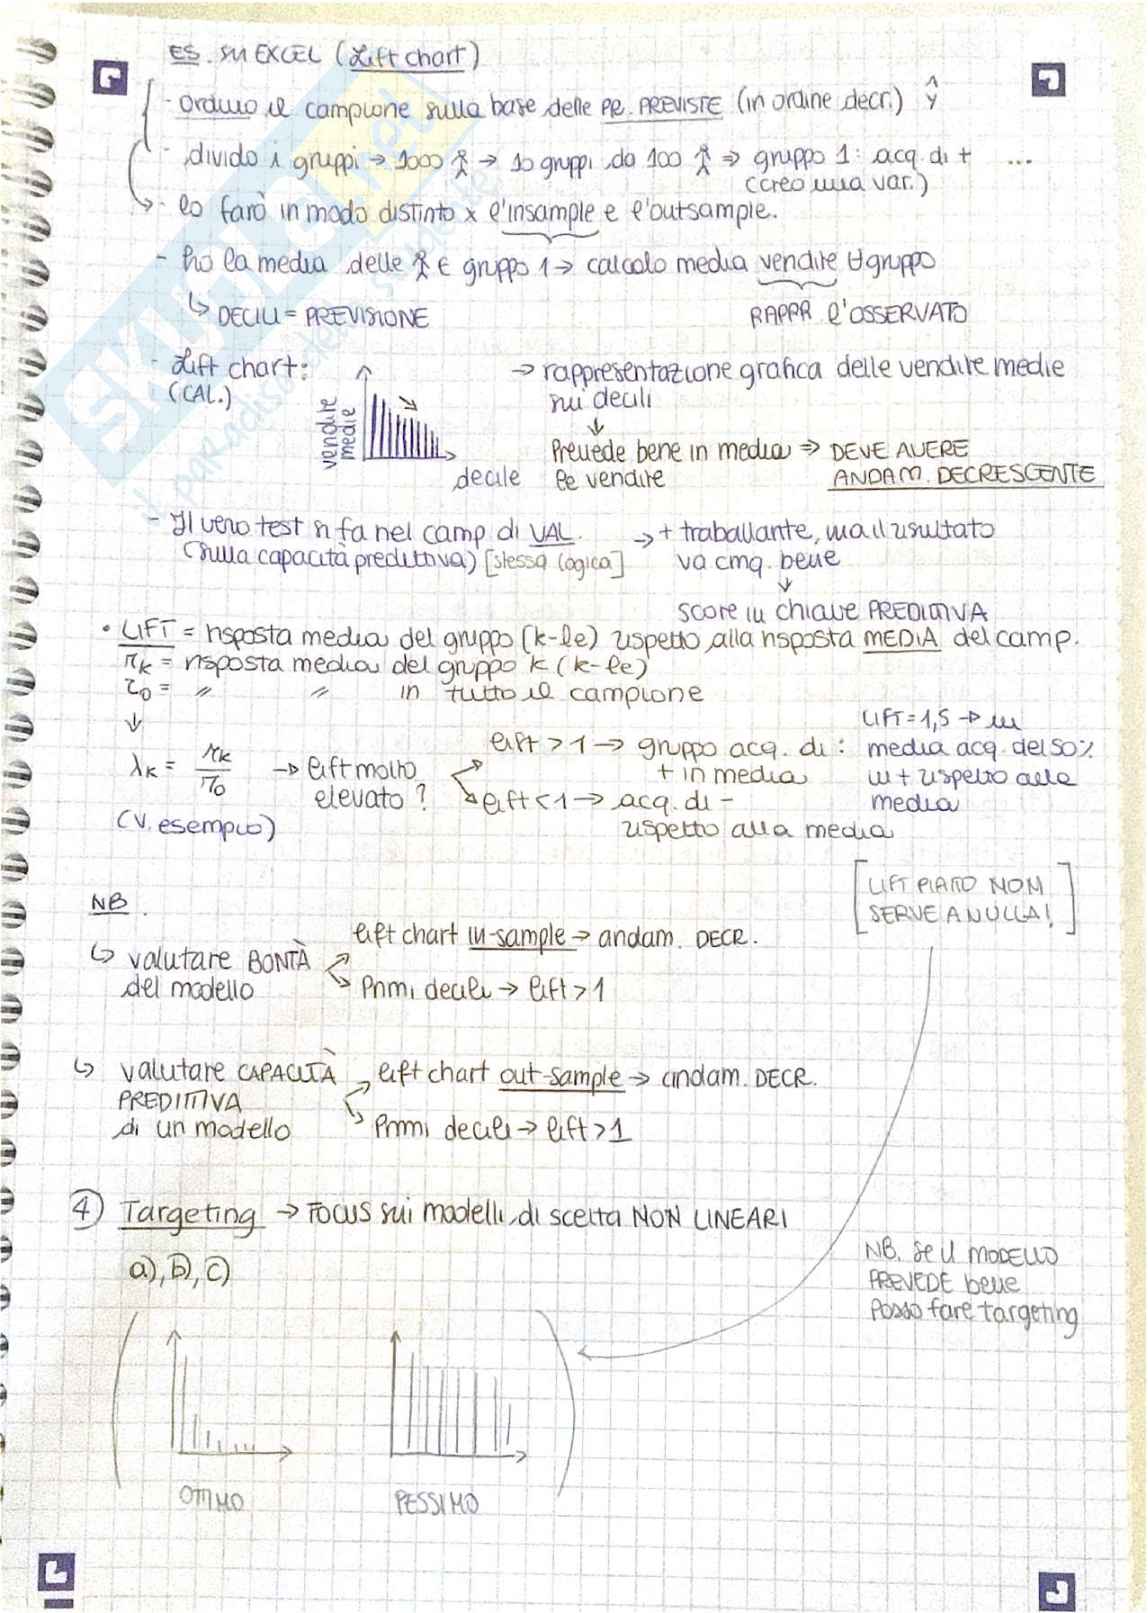 ES. SU EXCEL (Lift chart)
- ordino il campione sulla base delle PR. PREVISTE (in ordine decr.) ŷ
- divido i gruppi → 1000 → 10 gruppi da 100 ⇒ gruppo 1: acq. di + ...
(creo una var.)
↳ - lo farò in modo distinto x l'insample e l'outsample.
- ho la media delle ∈ gruppo 1 → calcolo media vendite ∀ gruppo
↳ DECILI = PREVISIONE
RAPPR l'OSSERVATO
- Lift chart:
(CAL.)
vendite medie
decile
→ rappresentazione grafica delle vendite medie
sui decili
↓
Prevede bene in media ⇒ DEVE AVERE
le vendite
ANDAM. DECRESCENTE
- Il vero test si fa nel camp. di VAL.
(sulla capacità predittiva) [stessa logica]
→ + traballante, ma il risultato
va cmq. bene
↓
score in chiave PREDITTIVA
• LIFT = risposta media del gruppo (k-le) rispetto alla risposta MEDIA del camp.
rk = risposta media del gruppo k (k-le)
r0 = " " in tutto il campione
↓
λk = rk / r0 → lift molto
elevato?
(v. esempio)
lift > 1 → gruppo acq. di :
+ in media
lift < 1 → acq. di -
rispetto alla media
LIFT = 1,5 → in
media acq. del 50%
in + rispetto alla
media
[LIFT PIATTO NON
SERVE A NULLA!]
NB.
↳ valutare BONTÀ
del modello
lift chart in-sample → andam. DECR.
Primi decili → lift > 1
↳ valutare CAPACITÀ
PREDITTIVA
di un modello
lift chart out-sample → andam. DECR.
Primi decili → lift > 1
4) Targeting → FOCUS sui modelli di scelta NON LINEARI
a), b), c)
NB. Se il MODELLO
PREVEDE bene
posso fare targeting
OTTIMO
PESSIMO